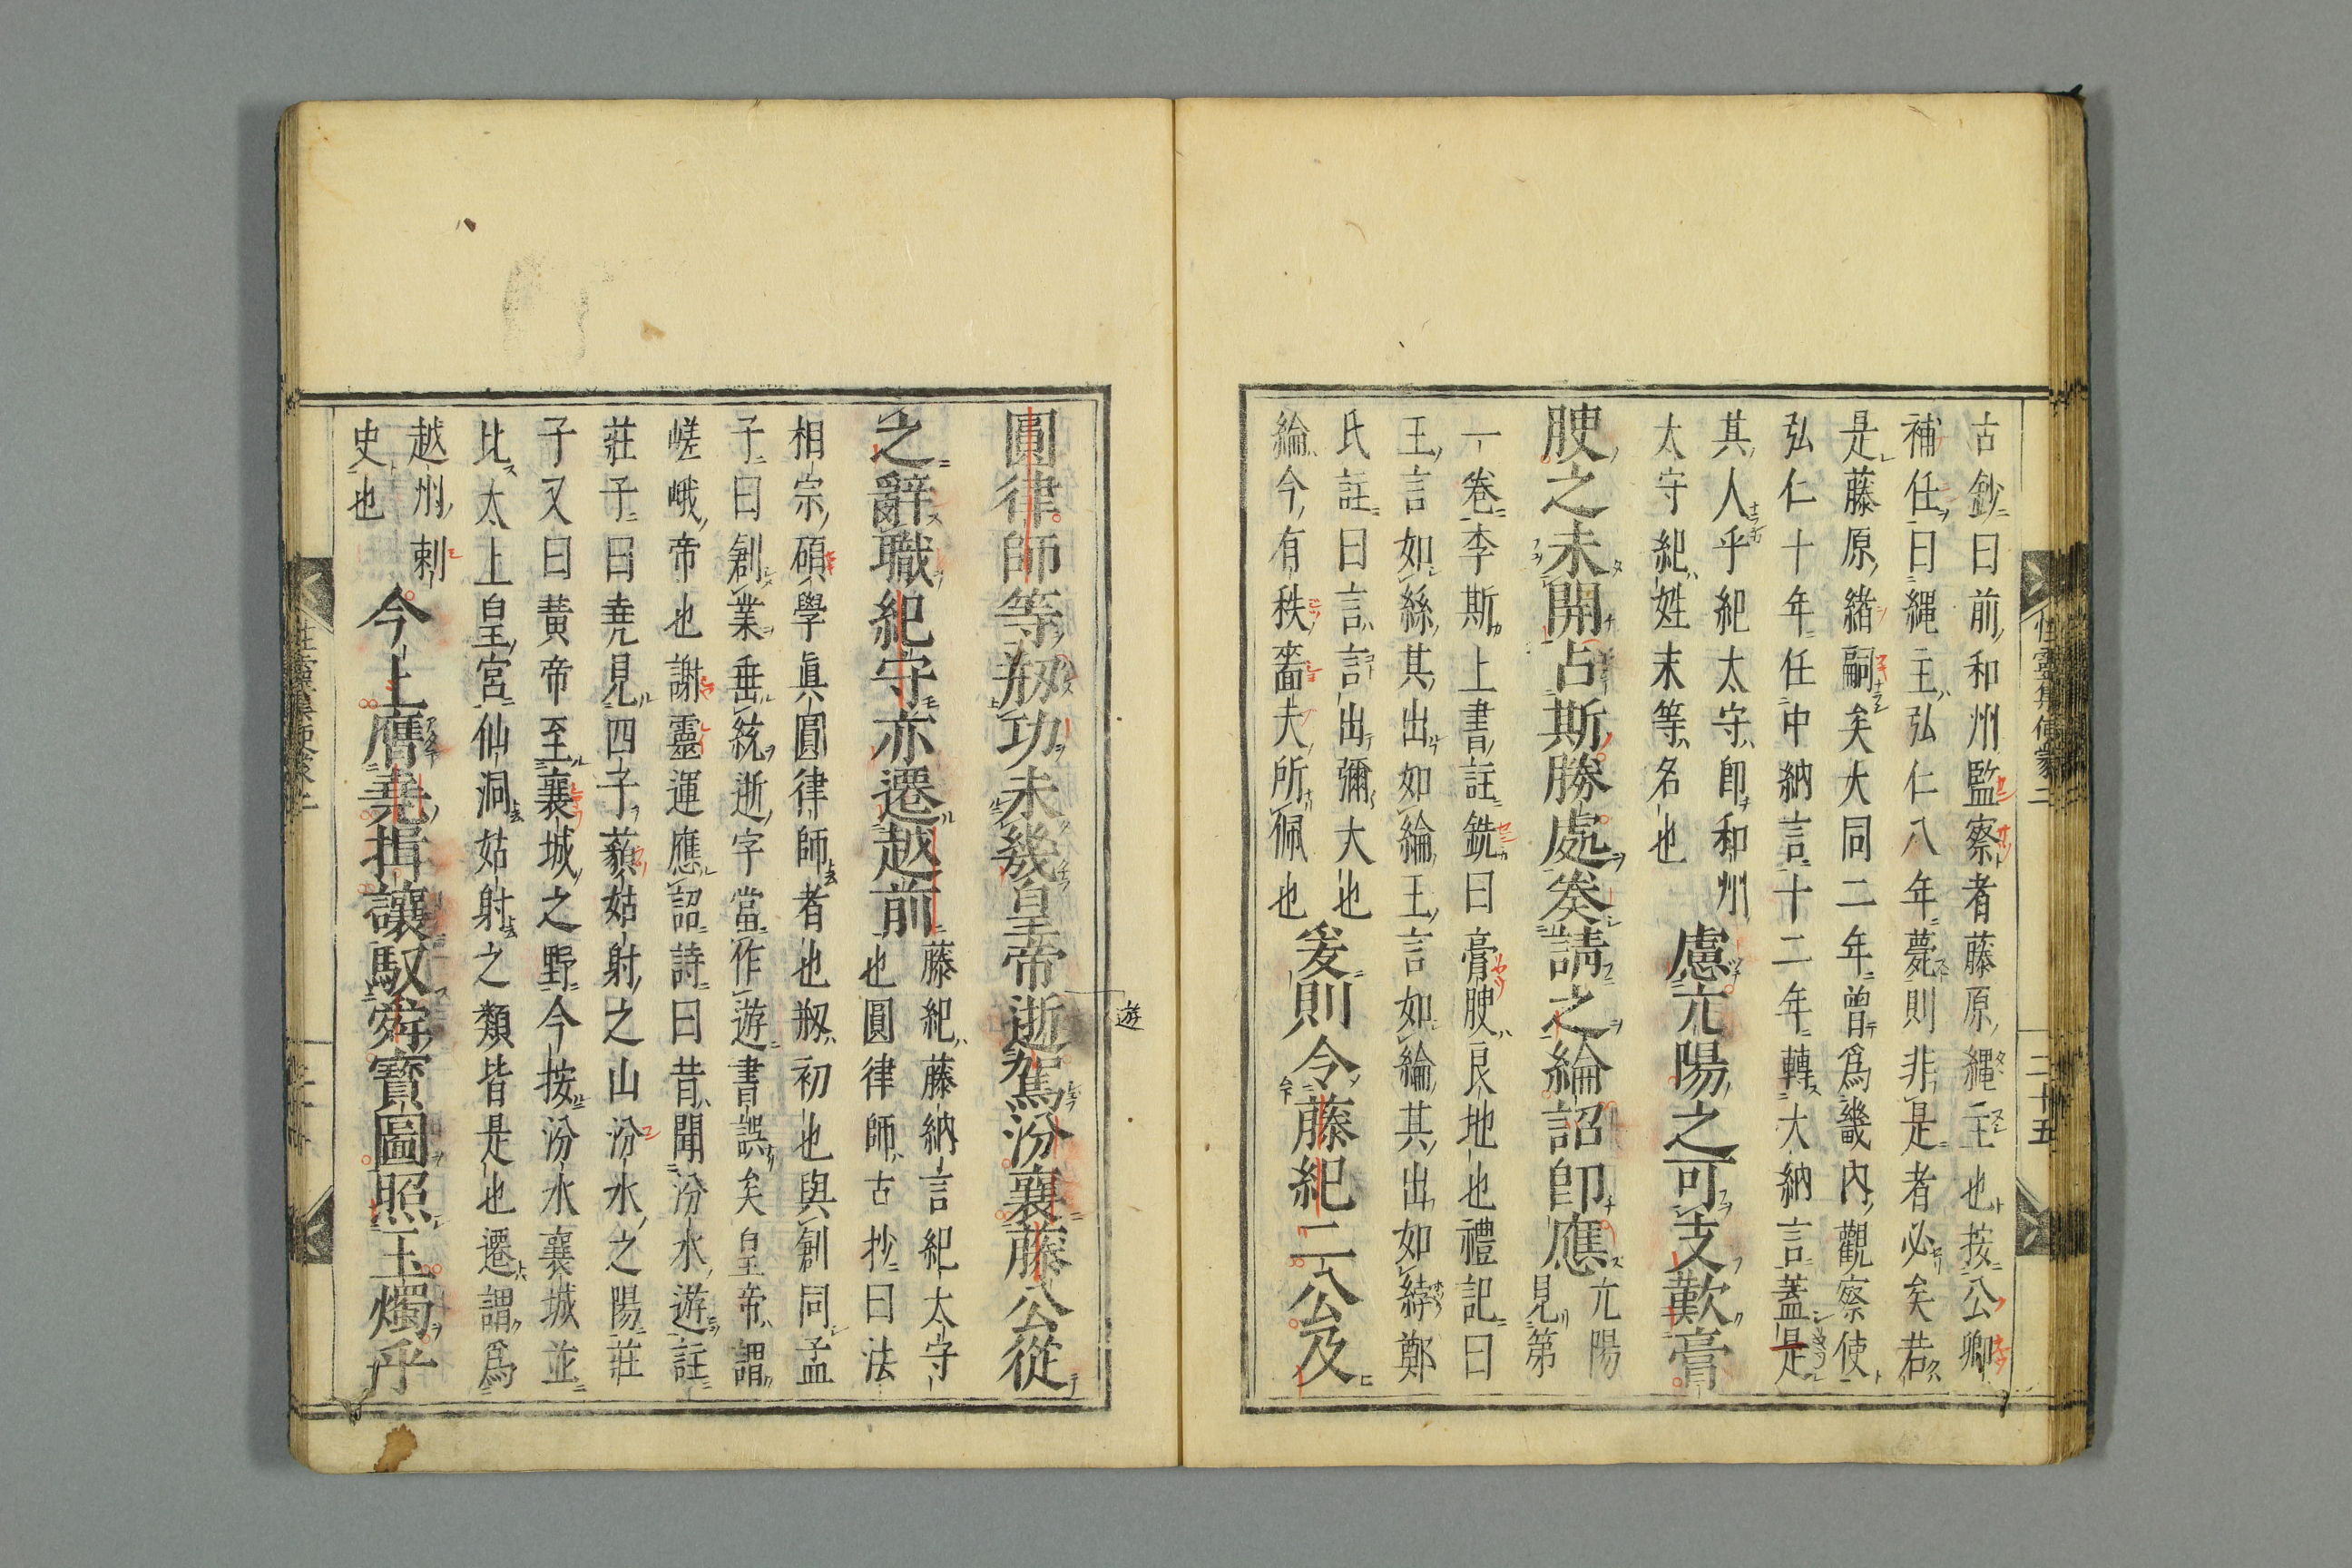 古鈔曰前和州監察者藤原縄主也按公卿
補任曰縄主弘仁八年薨則非是者必矣若
是藤原緒嗣矣大同二年曾爲畿內觀察使
弘仁十年任中納言十二年轉大納言蓋是
其人乎紀太守卽和州
太守紀姓末等名也
慮亢陽之可支歎膏
腴之未開占斯勝處奏請之綸詔卽應
亢陽
見第
一卷李斯上書註銑曰膏腴良地也禮記曰
王言如絲其出如綸王言如綸其出如綍鄭
氏註曰言言出彌大也
綸今有秩嗇夫所佩也
爰則令藤紀二公及
圓律師等剏功未幾皇帝逝駕汾襄藤公從
之辭職紀守亦遷越前
藤紀藤納言紀太守
也圓律師古抄曰法
相宗碩學眞圓律師者也剏初也與創同孟
子曰創業垂統逝字當作遊書誤矣皇帝謂
嵯峨帝也謝靈運應詔詩曰昔聞汾水遊註
莊子曰堯見四子藐姑射之山汾水之陽莊
子又曰黃帝至襄城之野今按汾水襄城並
比太上皇宮仙洞姑射之類皆是也遷謂爲
越州刺
史也
今上膺堯揖讓馭舜寶圖照玉燭乎
遊
性靈集便蒙二
二十五